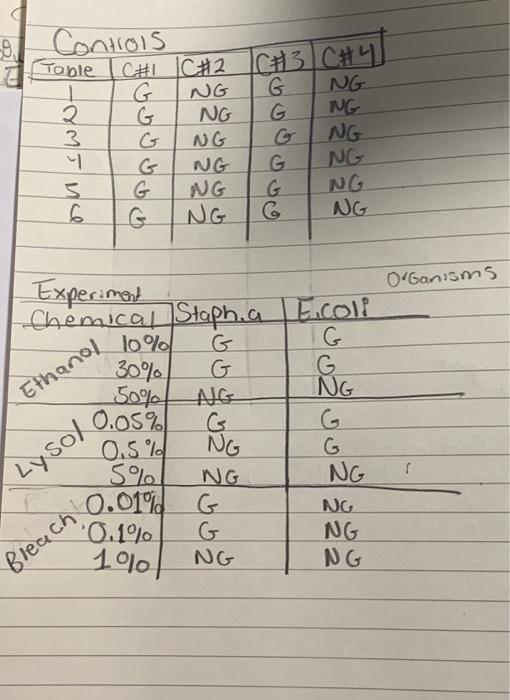 Controls
Table C#1 C#2 C#3 C#4
1 G NG G NG
2 G NG G NG
3 G NG G NG
4 G NG G NG
5 G NG G NG
6 G NG G NG
Organisms
Experiment
Chemical Staph.a E.coli
Ethanol 10% G G
30% G G
50% NG NG
Lysol 0.05% G G
0.5% NG G
5% NG NG
Bleach 0.01% G NG
0.1% G NG
1% NG NG